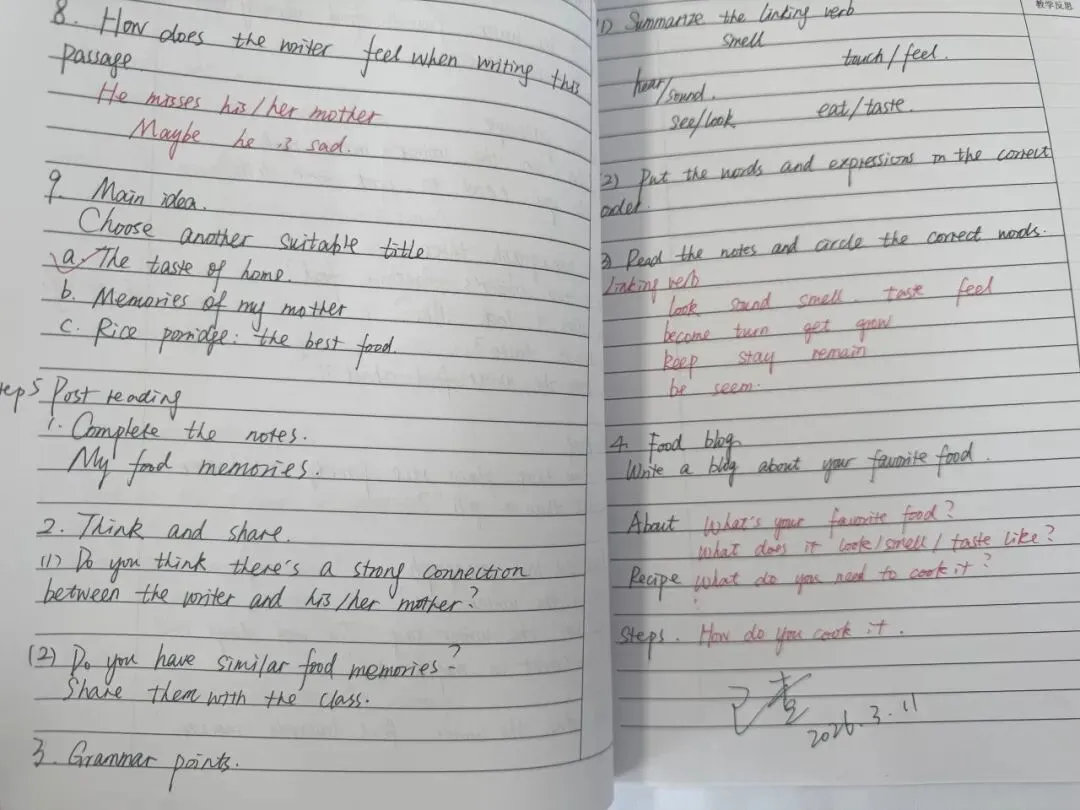 8. How does the writer feel when writing this
passage
He misses his/her mother
Maybe he is sad.
9. Main idea.
Choose another suitable title
a. The taste of home.
b. Memories of my mother
c. Rice porridge: the best food.
Step 5 Post reading
1. Complete the notes.
My food memories.
2. Think and share.
(1) Do you think there's a strong connection
between the writer and his/her mother?
(2) Do you have similar food memories?
Share them with the class.
3. Grammar points.
教学反思
(1) Summarize the linking verb
smell
touch/feel.
hear/sound.
see/look eat/taste.
(2) Put the words and expressions in the correct
order.
(3) Read the notes and circle the correct words.
Linking verb
look sound smell. taste feel
become turn get grow
keep stay remain
be seem.
4. Food blog
Write a blog about your favorite food.
About What's your favorite food?
What does it look/smell/taste like?
Recipe What do you need to cook it?
Steps. How do you cook it.
已查
2026.3.11